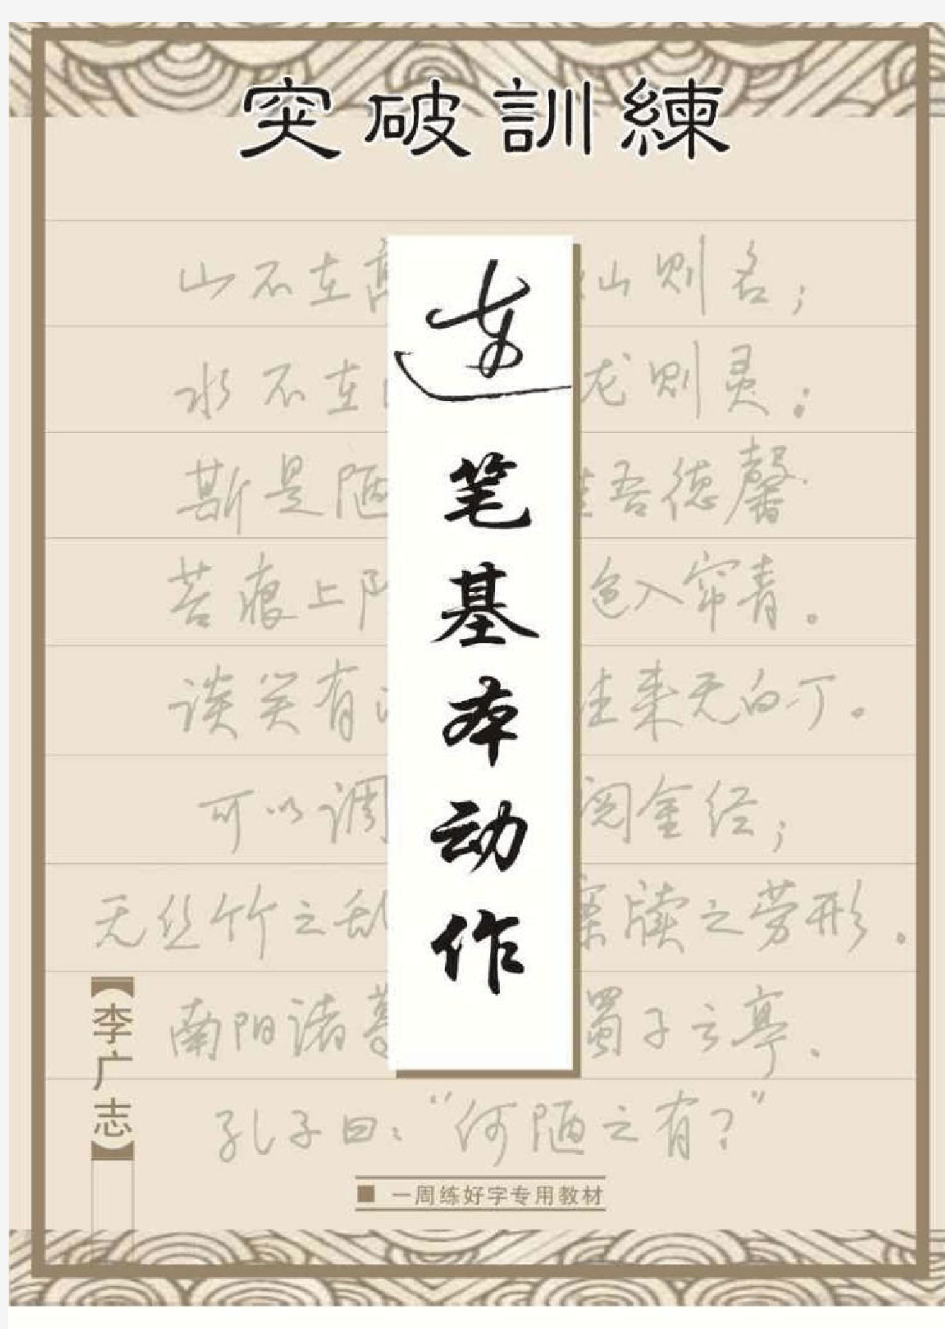 突破訓練
连笔基本动作
山不在高 仙则名；
水不在 龙则灵；
斯是陋 吾德馨
苔痕上阶 色入帘青。
谈笑有 往来无白丁。
可以调 阅金经；
无丝竹之乱 案牍之劳形。
南阳诸葛 蜀子云亭、
孔子曰：“何陋之有？”
【李广志】
一周练好字专用教材